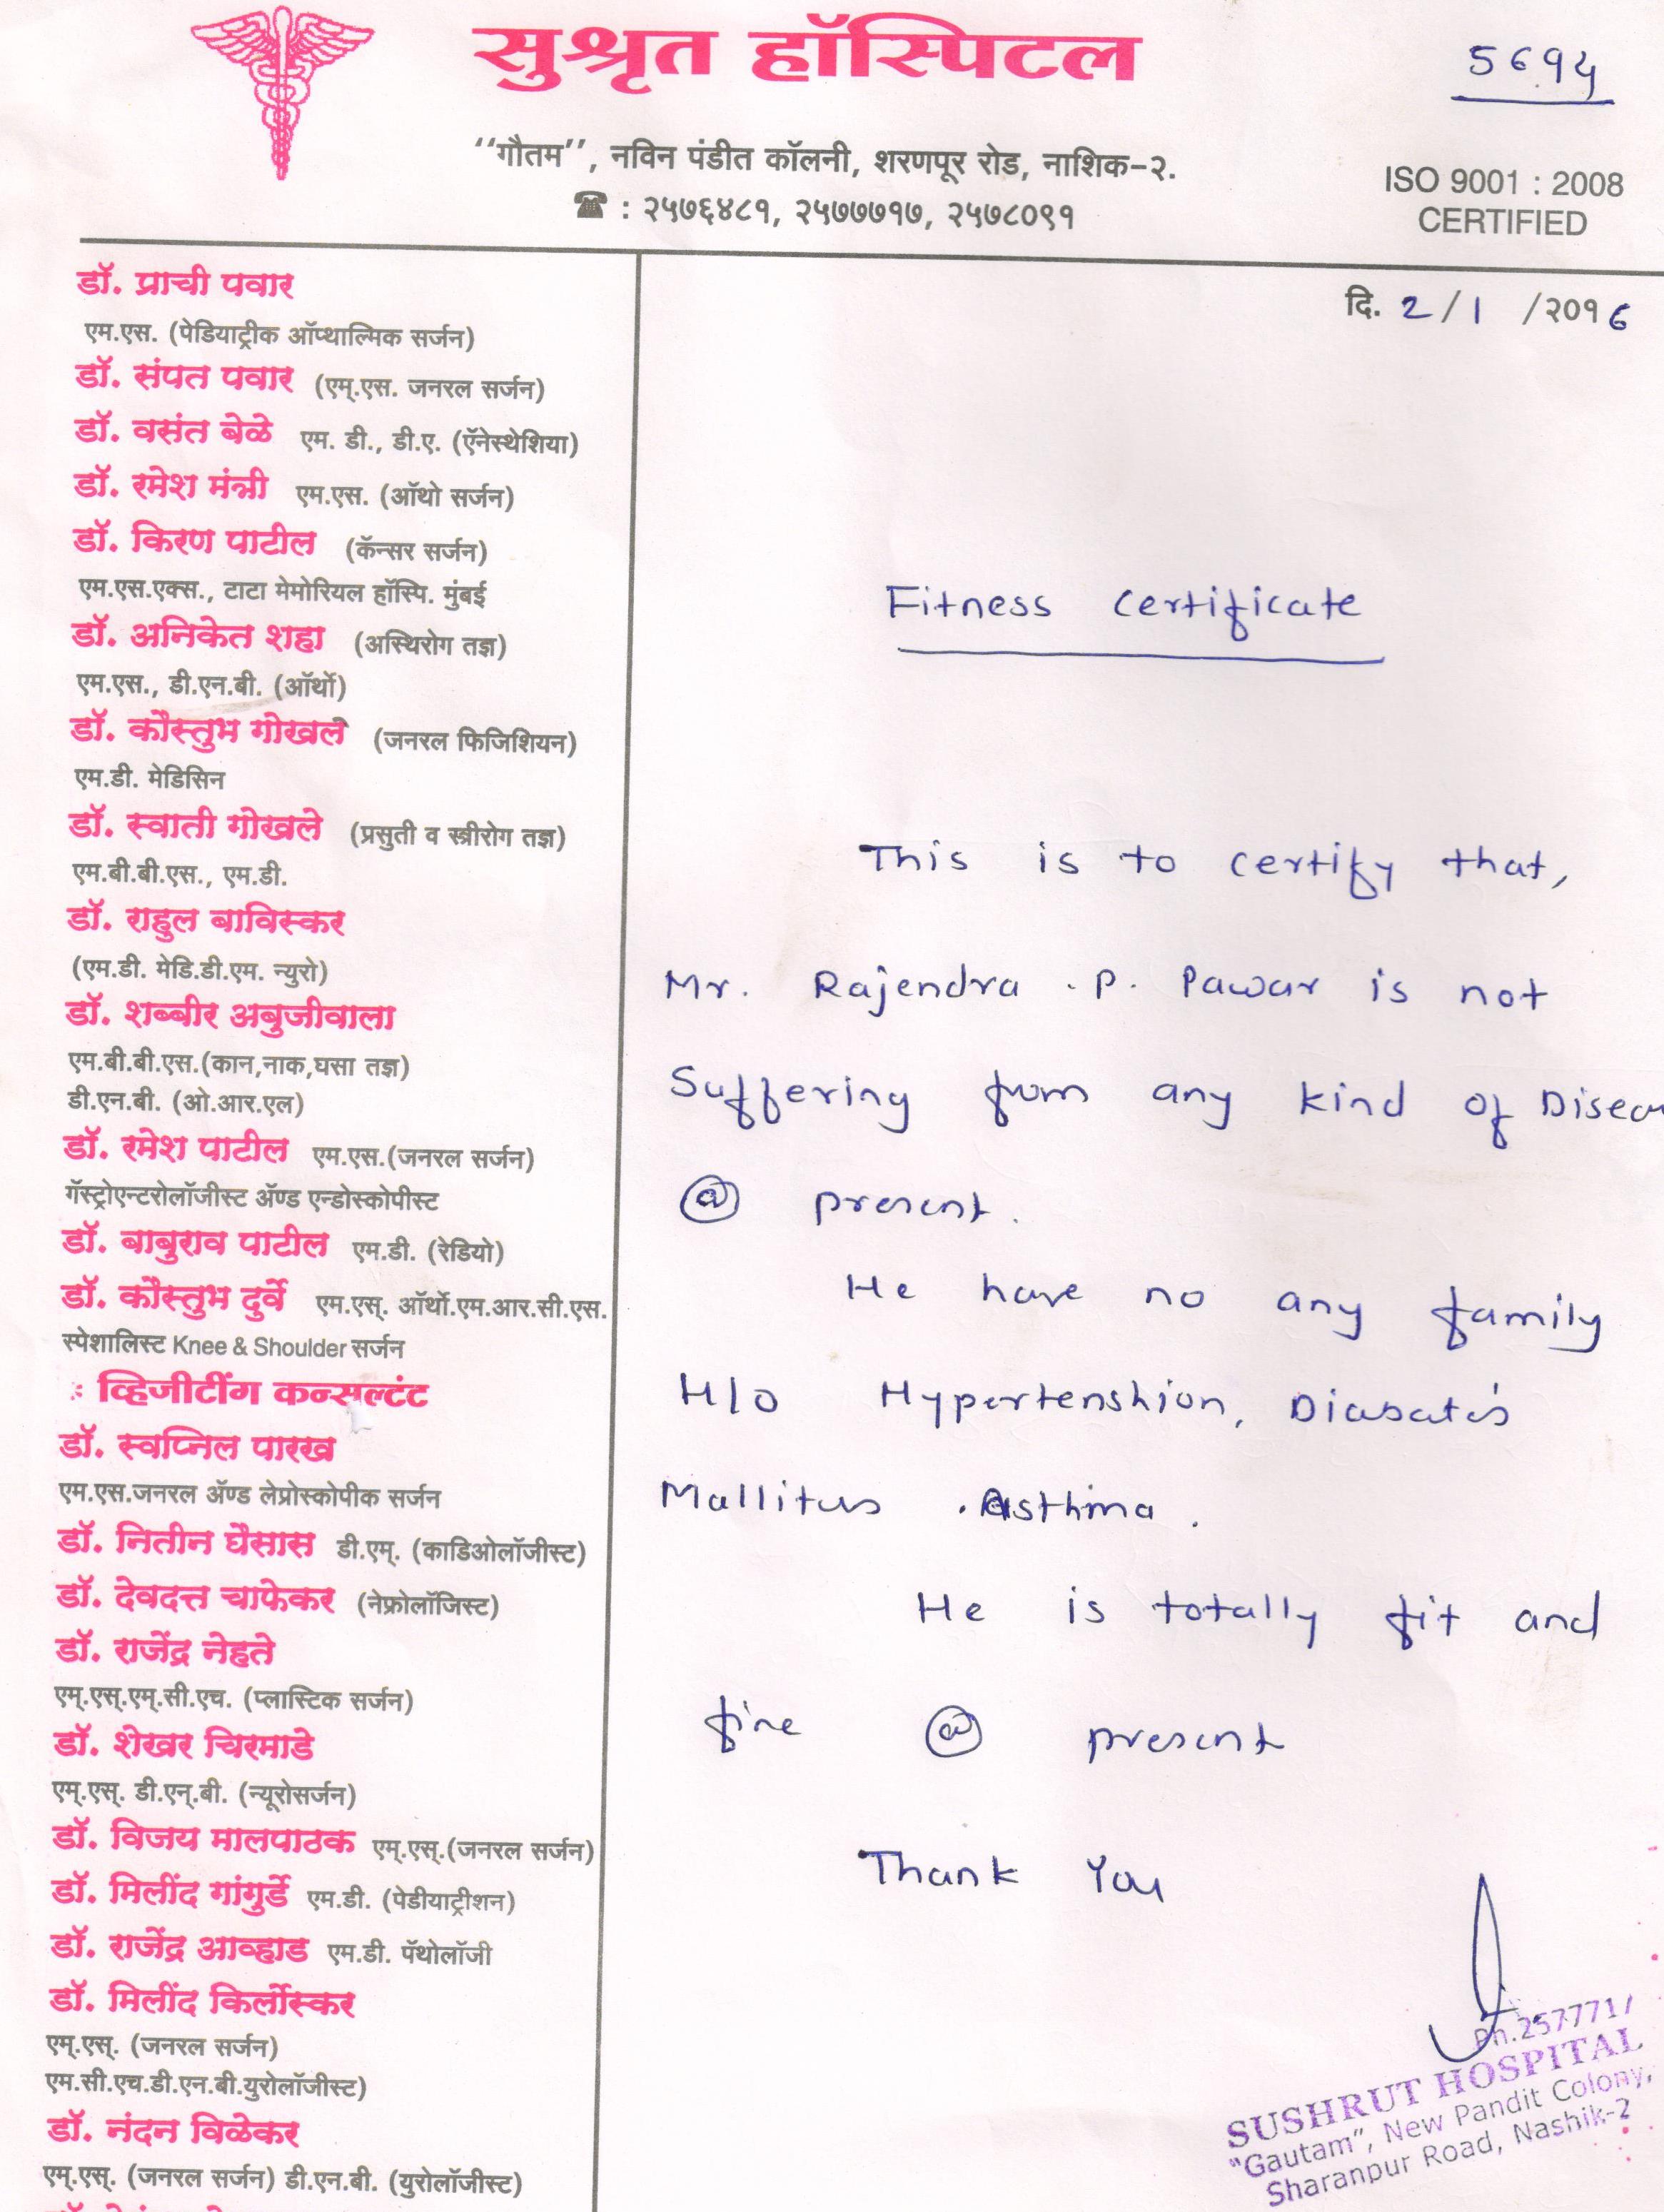 सुश्रृत हॉस्पिटल
5694
“गौतम”, नविन पंडीत कॉलनी, शरणपूर रोड, नाशिक-२.
: २५७६४८१, २५७७७१७, २५७८०९१
ISO 9001 : 2008
CERTIFIED
दि. 2/1 /२०१6
डॉ. प्राची पवार
एम.एस. (पेडियाट्रीक ऑप्थाल्मिक सर्जन)
डॉ. संपत पवार (एम्.एस. जनरल सर्जन)
डॉ. वसंत बेळे एम. डी., डी.ए. (ऍनेस्थेशिया)
डॉ. रमेश मंत्री एम.एस. (ऑथो सर्जन)
डॉ. किरण पाटील (कॅन्सर सर्जन)
एम.एस.एक्स., टाटा मेमोरियल हॉस्पि. मुंबई
डॉ. अनिकेत शहा (अस्थिरोग तज्ञ)
एम.एस., डी.एन.बी. (ऑर्थो)
डॉ. कौस्तुभ गोखले (जनरल फिजिशियन)
एम.डी. मेडिसिन
डॉ. स्वाती गोखले (प्रसुती व स्त्रीरोग तज्ञ)
एम.बी.बी.एस., एम.डी.
डॉ. राहुल बाविस्कर
(एम.डी. मेडि.डी.एम. न्युरो)
डॉ. शब्बीर अबुजीवाला
एम.बी.बी.एस.(कान,नाक,घसा तज्ञ)
डी.एन.बी. (ओ.आर.एल)
डॉ. रमेश पाटील एम.एस.(जनरल सर्जन)
गॅस्ट्रोएन्टरोलॉजीस्ट ॲण्ड एन्डोस्कोपीस्ट
डॉ. बाबुराव पाटील एम.डी. (रेडियो)
डॉ. कौस्तुभ दुर्वे एम.एस्. ऑर्थो.एम.आर.सी.एस.
स्पेशालिस्ट Knee & Shoulder सर्जन
: व्हिजीटींग कन्सल्टंट
डॉ. स्वप्निल पारख
एम.एस.जनरल ॲण्ड लेप्रोस्कोपीक सर्जन
डॉ. नितीन घैसास डी.एम्. (कार्डिओलॉजीस्ट)
डॉ. देवदत्त चाफेकर (नेफ्रोलॉजिस्ट)
डॉ. राजेंद्र नेहते
एम्.एस्.एम्.सी.एच. (प्लास्टिक सर्जन)
डॉ. शेखर चिरमाडे
एम्.एस्. डी.एन्.बी. (न्यूरोसर्जन)
डॉ. विजय मालपाठक एम्.एस्.(जनरल सर्जन)
डॉ. मिलींद गांगुर्डे एम.डी. (पेडीयाट्रीशन)
डॉ. राजेंद्र आव्हाड एम.डी. पॅथोलॉजी
डॉ. मिलींद किर्लोस्कर
एम्.एस्. (जनरल सर्जन)
एम.सी.एच.डी.एन.बी.युरोलॉजीस्ट)
डॉ. नंदन विळेकर
एम्.एस्. (जनरल सर्जन) डी.एन.बी. (युरोलॉजीस्ट)
Fitness Certificate
This is to certify that,
Mr. Rajendra .P. Pawar is not
Suffering from any kind of Diseas
@ present.
He have no any family
H/O Hypertenshion, Diabatis
Mallitus . Asthma .
He is totally fit and
fine @ present
Thank You
Ph.2577717
SUSHRUT HOSPITAL
"Gautam", New Pandit Colony,
Sharanpur Road, Nashik-2